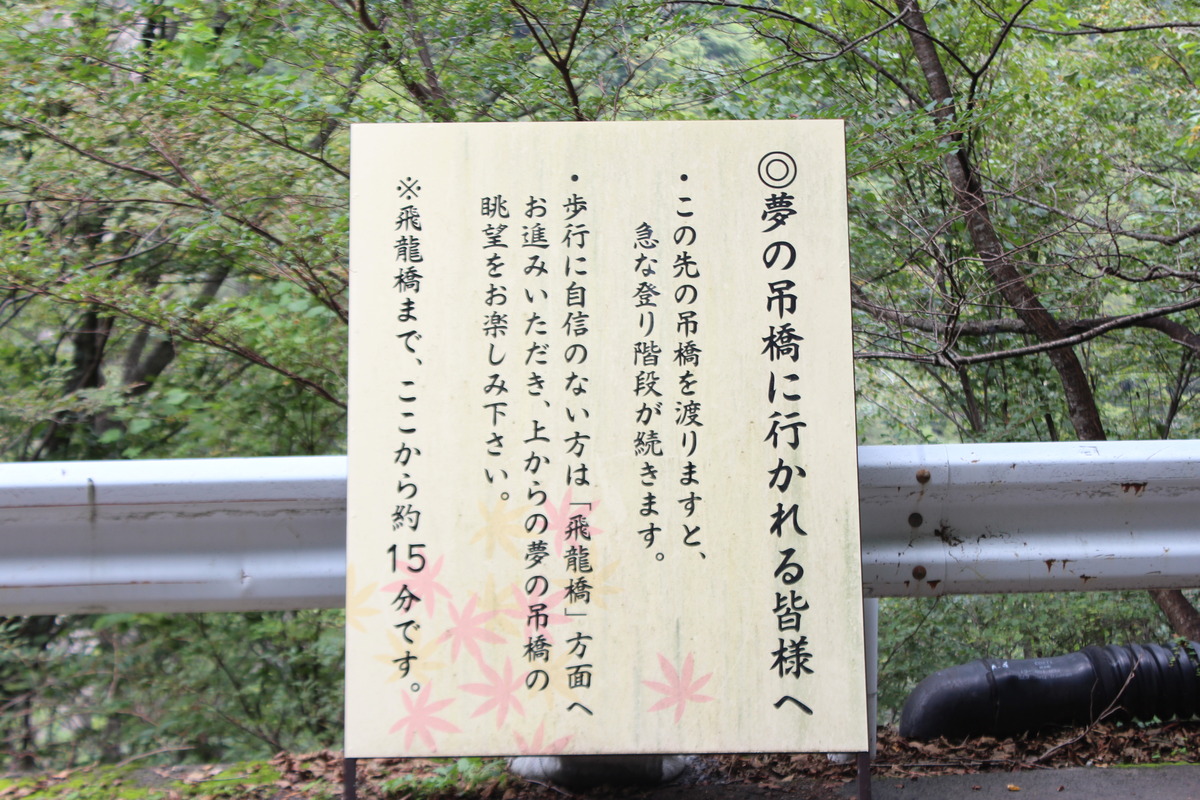 ◎夢の吊橋に行かれる皆様へ
・この先の吊橋を渡りますと、
急な登り階段が続きます。
・歩行に自信のない方は「飛龍橋」方面へ
お進みいただき、上からの夢の吊橋の
眺望をお楽しみ下さい。
※飛龍橋まで、ここから約15分です。